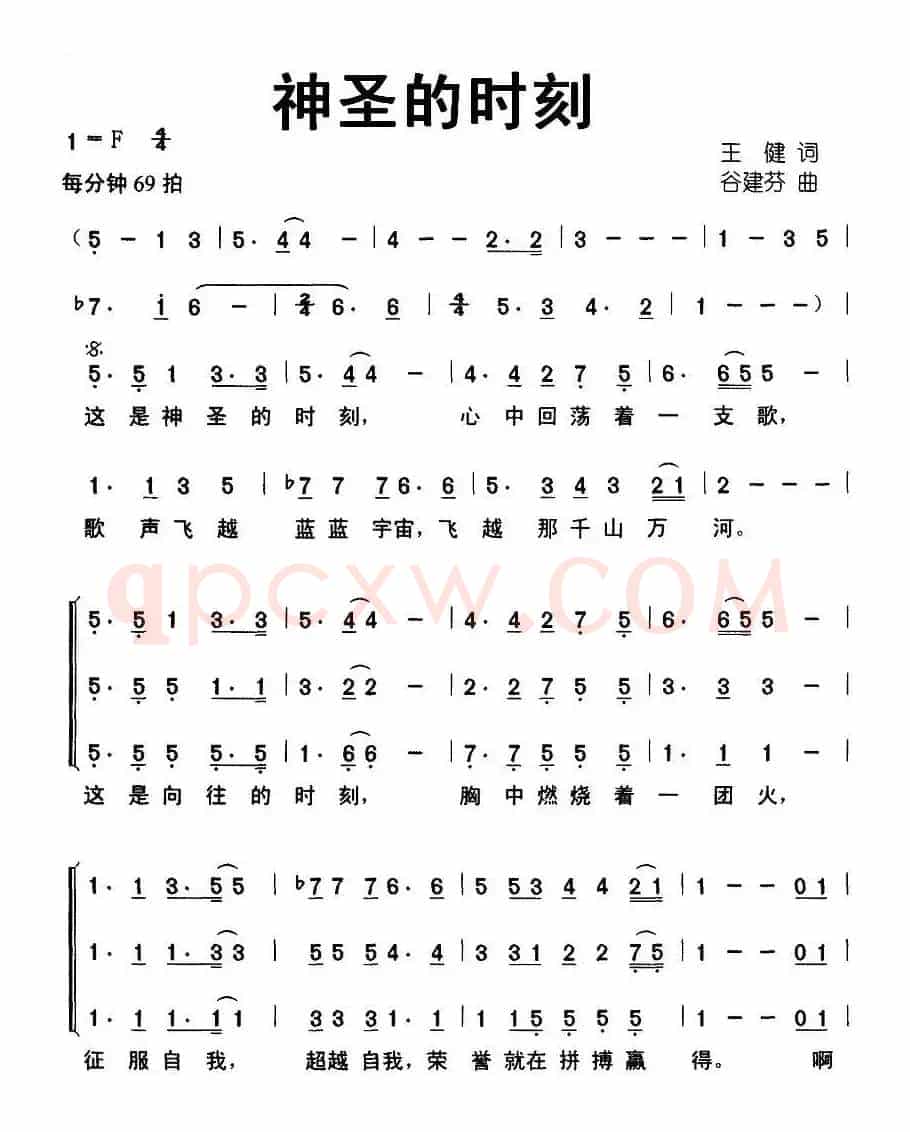 神圣的时刻
1=F 4/4
王 健 词
每分钟69拍
谷建芬 曲
(5 - 1 3 | 5· 4 4 - | 4 - - 2·2 | 3 - - - | 1 - 3 5 |
♭7· i 6 - | 2/4 6· 6 | 4/4 5· 3 4· 2 | 1 - - -) |
5· 5 1 3·3 | 5· 4 4 - | 4· 4 2 7 5 | 6· 6 5 5 - |
这 是 神 圣 的 时 刻， 心 中 回 荡 着 一 支 歌，
1· 1 3 5 | ♭7 7 7 6· 6 | 5· 3 4 3 2 1 | 2 - - - |
歌 声 飞 越 蓝蓝 宇宙，飞 越 那 千 山 万 河。
qpcxw.COM
5· 5 1 3·3 | 5· 4 4 - | 4· 4 2 7 5 | 6· 6 5 5 - |
5· 5 5 1·1 | 3· 2 2 - | 2· 2 7 5 5 | 3· 3 3 - |
5· 5 5 5·5 | 1· 6 6 - | 7· 7 5 5 5 | 1· 1 1 - |
这 是 向 往 的 时 刻， 胸 中 燃 烧 着 一 团 火，
1· 1 3·5 5 | ♭7 7 7 6· 6 | 5 5 3 4 4 2 1 | 1 - - 0 1 |
1· 1 1·3 3 | 5 5 5 4· 4 | 3 3 1 2 2 7 5 | 1 - - 0 1 |
1· 1 1·1 1 | 3 3 3 1· 1 | 1 1 5 5 5 5 | 1 - - 0 1 |
征 服 自 我， 超越 自我，荣 誉 就在 拼 搏 赢 得。 啊